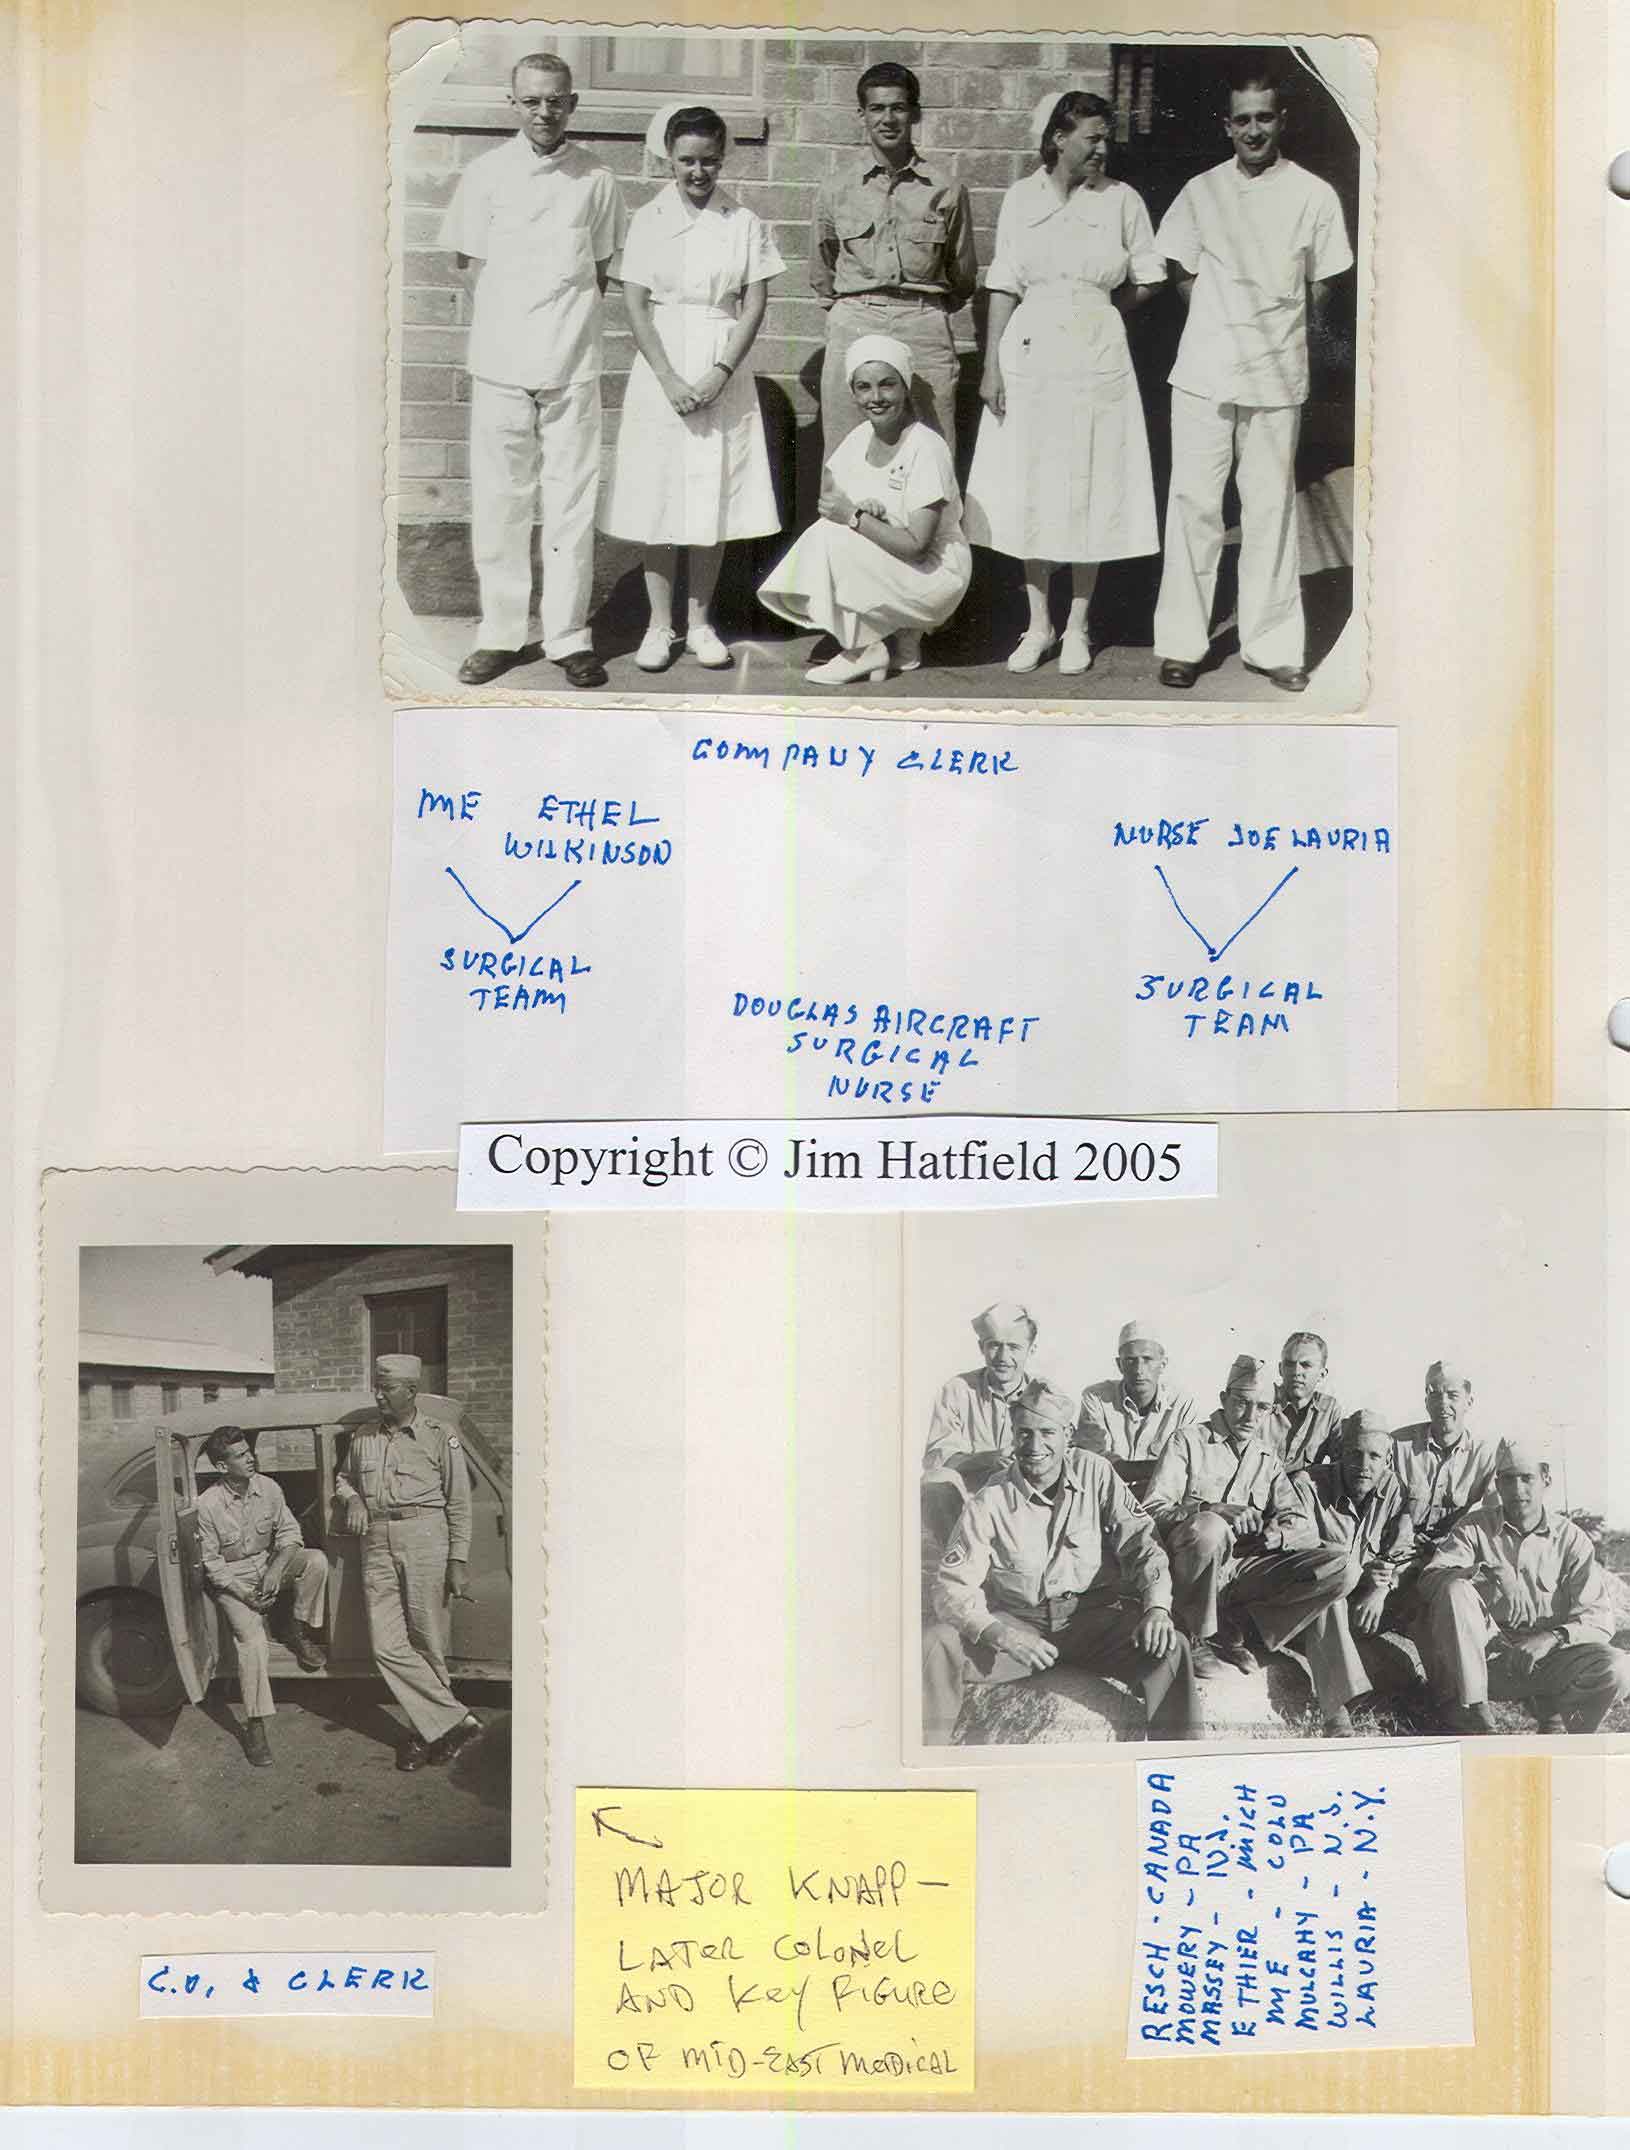 COMPANY CLERK
ME ETHEL
WILKINSON
NURSE JOE LAURIA
SURGICAL
TEAM
SURGICAL
TEAM
DOUGLAS AIRCRAFT
SURGICAL
NURSE
Copyright © Jim Hatfield 2005
C.O. & CLERK
MAJOR KNAPP -
LATER COLONEL
AND KEY FIGURE
OF MID-EAST MEDICAL
RESCH - CANADA
MOWERY - PA
MASSEY - N.J.
ETHIER - MICH
ME - COLO
MULCAHY - PA
WILLIS - N.J.
LAURIA - N.Y.